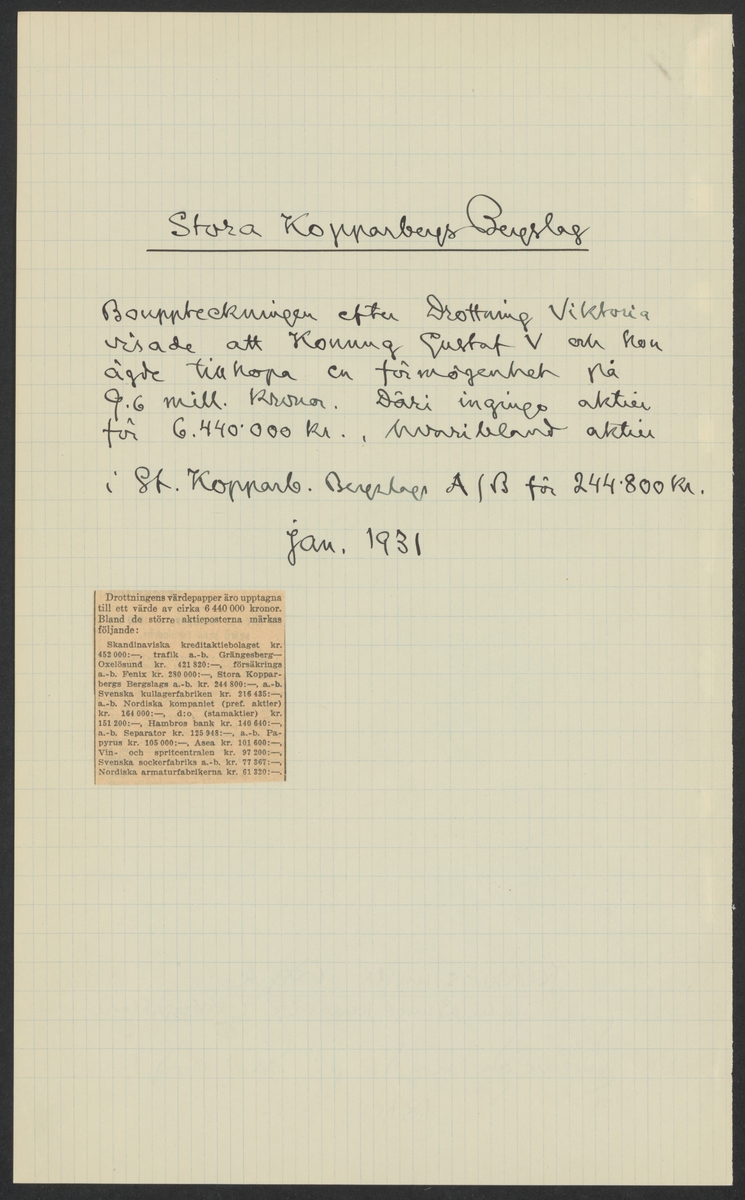 Stora Kopparbergs Bergslag
Bouppteckningen efter Drottning Viktoria
visade att Konung Gustaf V och hon
ägde tillhopa en förmögenhet på
9.6 mill. kronor. Däri ingingo aktier
för 6.440.000 kr., hvaribland aktier
i St. Kopparb. Bergslags A/B för 244.800 kr.
jan. 1931
Drottningens värdepapper äro upptagna
till ett värde av cirka 6 440 000 kronor.
Bland de större aktieposterna märkas
följande:
Skandinaviska kreditaktiebolaget kr.
452 000:—, trafik a.-b. Grängesberg—
Oxelösund kr. 421 820:—, försäkrings
a.-b. Fenix kr. 280 000:—, Stora Koppar-
bergs Bergslags a.-b. kr. 244 800:—, a.-b.
Svenska kullagerfabriken kr. 216 435:—,
a.-b. Nordiska kompaniet (pref. aktier)
kr. 164 000:—, d:o (stamaktier) kr.
151 200:—, Hambros bank kr. 140 640:—,
a.-b. Separator kr. 125 948:—, a.-b. Pa-
pyrus kr. 105 000:—, Asea kr. 101 600:—,
Vin- och spritcentralen kr. 97 200:—,
Svenska sockerfabriks a.-b. kr. 77 367:—,
Nordiska armaturfabrikerna kr. 61 320:—.